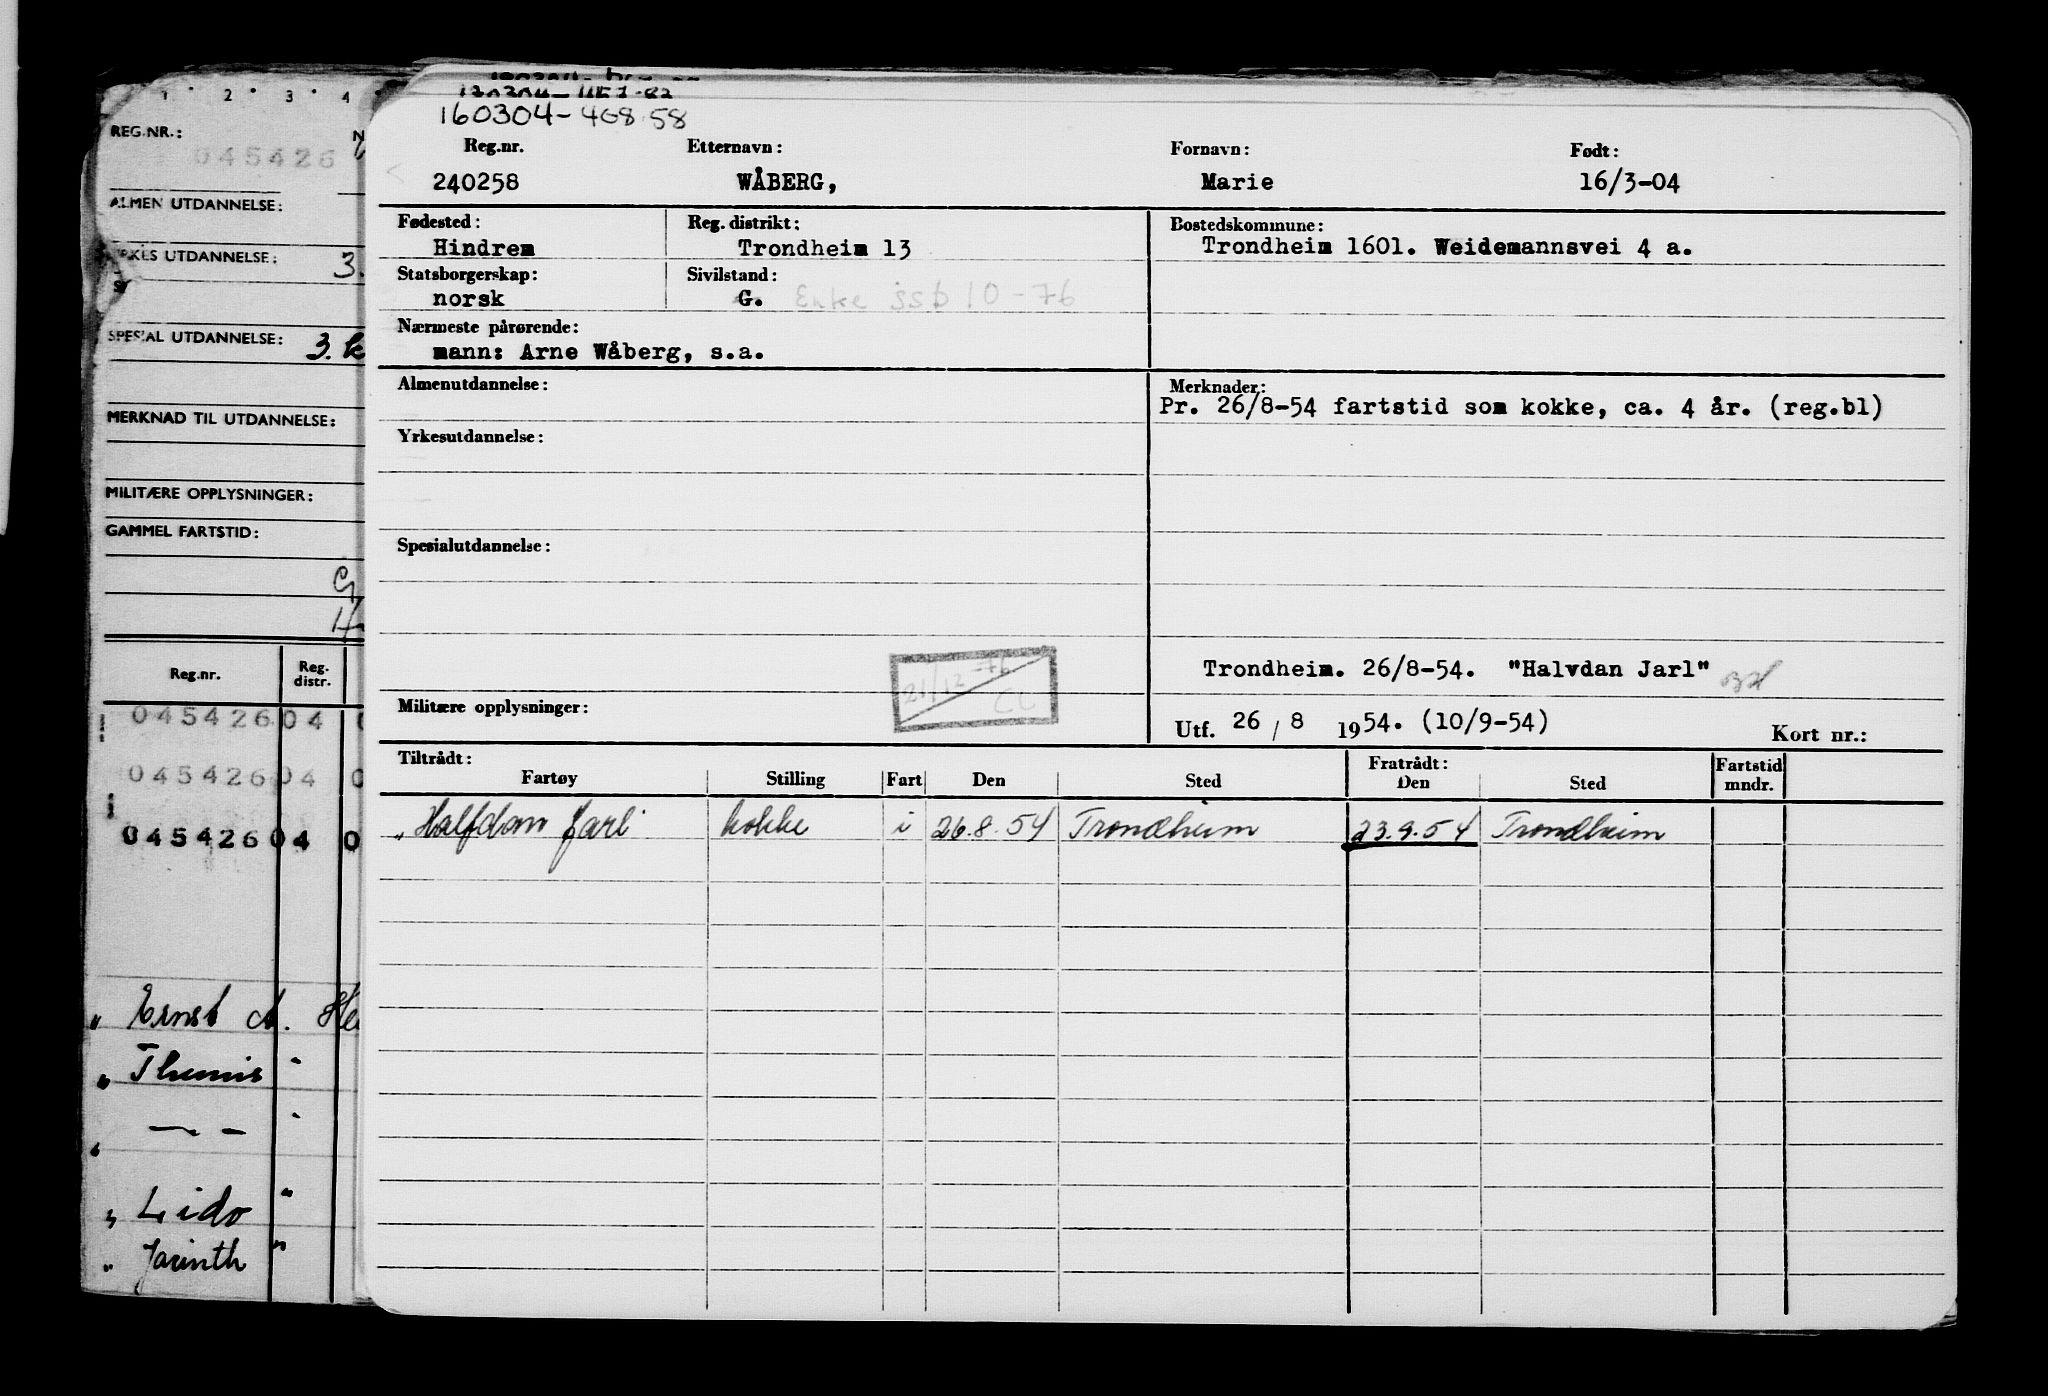 1 2 3 4
REG.NR.:
045426
ALMEN UTDANNELSE:
UTDANNELSE:
3.
SPESIAL UTDANNELSE:
3. k
MERKNAD TIL UTDANNELSE:
MILITÆRE OPPLYSNINGER:
GAMMEL FARTSTID:
Reg.nr. Reg. distr.
045426 04 0
045426 04 0
045426 04 0
" Ernst A. He
" Themis "
" — " — "
" Lido "
" Jarinth "
160304-46858
Reg.nr. Etternavn: Fornavn: Født:
240258 WÅBERG, Marie 16/3-04
Fødested: Reg. distrikt: Bostedskommune:
Hindrem Trondheim 13 Trondheim 1601. Weidemannsvei 4 a.
Statsborgerskap: Sivilstand:
norsk G. Enke jsb 10-76
Nærmeste pårørende:
mann: Arne Wåberg, s.a.
Almenutdannelse: Merknader:
Pr. 26/8-54 fartstid som kokke, ca. 4 år. (reg.bl)
Yrkesutdannelse:
Spesialutdannelse:
21/12-76 CL
Trondheim. 26/8-54. "Halvdan Jarl"
Militære opplysninger:
Utf. 26 / 8 1954. (10/9-54) Kort nr.:
Tiltrådt: Fratrådt: Fartstid
Fartøy Stilling Fart Den Sted Den Sted mndr.
"Halfdan Jarl" kokke i 26.8.54 Trondheim 23.9.54 Trondheim